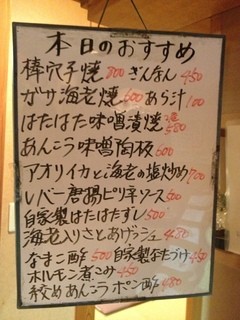 本日のおすすめ
棒穴子焼 800 ぎんなん 450
ガサ海老焼 600 あら汁 100
はたはた味噌漬焼 580
あんこう味噌陶板 600
アオリイカと海老の塩炒め 700
レバー唐揚ピリ辛ソース 600
自家製はたはたずし 500
海老入りさとあげッシュ 480
なまこ酢 500 自家製なたづけ 450
ホルモン煮こみ 450
絞めあんこうポン酢 480